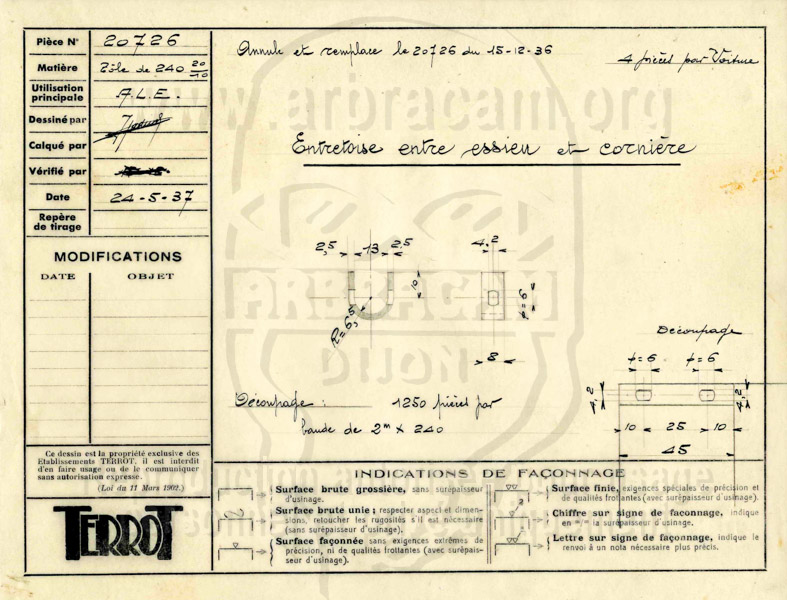 Pièce N° 20726
Matière Tôle de 240 20/10
Utilisation principale A.L.E.
Dessiné par
Calqué par
Vérifié par
Date 24-5-37
Repère de tirage
MODIFICATIONS
DATE OBJET
Ce dessin est la propriété exclusive des
Etablissements TERROT, il est interdit
d'en faire usage ou de le communiquer
sans autorisation expresse.
(Loi du 11 Mars 1902.)
TERROT
Annule et remplace le 20726 du 15-12-36
4 pièces par Voiture
Entretoise entre essieu et cornière
2,5 13 2,5
10
R=6,5
4,2
t=6
8
Découpage
t=6 t=6
4,2 4,2
10 25 10
45
Découpage : 1250 pièces par
bande de 2m x 240
INDICATIONS DE FAÇONNAGE
Surface brute grossière, sans surépaisseur
d'usinage.
Surface brute unie ; respecter aspect et dimen-
sions, retoucher les rugosités s'il est nécessaire
(sans surépaisseur d'usinage).
Surface façonnée sans exigences extrêmes de
précision, ni de qualités frottantes (avec surépais-
seur d'usinage).
Surface finie, exigences spéciales de précision et
de qualités frottantes (avec surépaisseur d'usinage).
Chiffre sur signe de façonnage, indique
en m/m la surépaisseur d'usinage.
Lettre sur signe de façonnage, indique le
renvoi à un nota nécessaire plus précis.
www.arbracam.org
ARBRACAM
DIJON